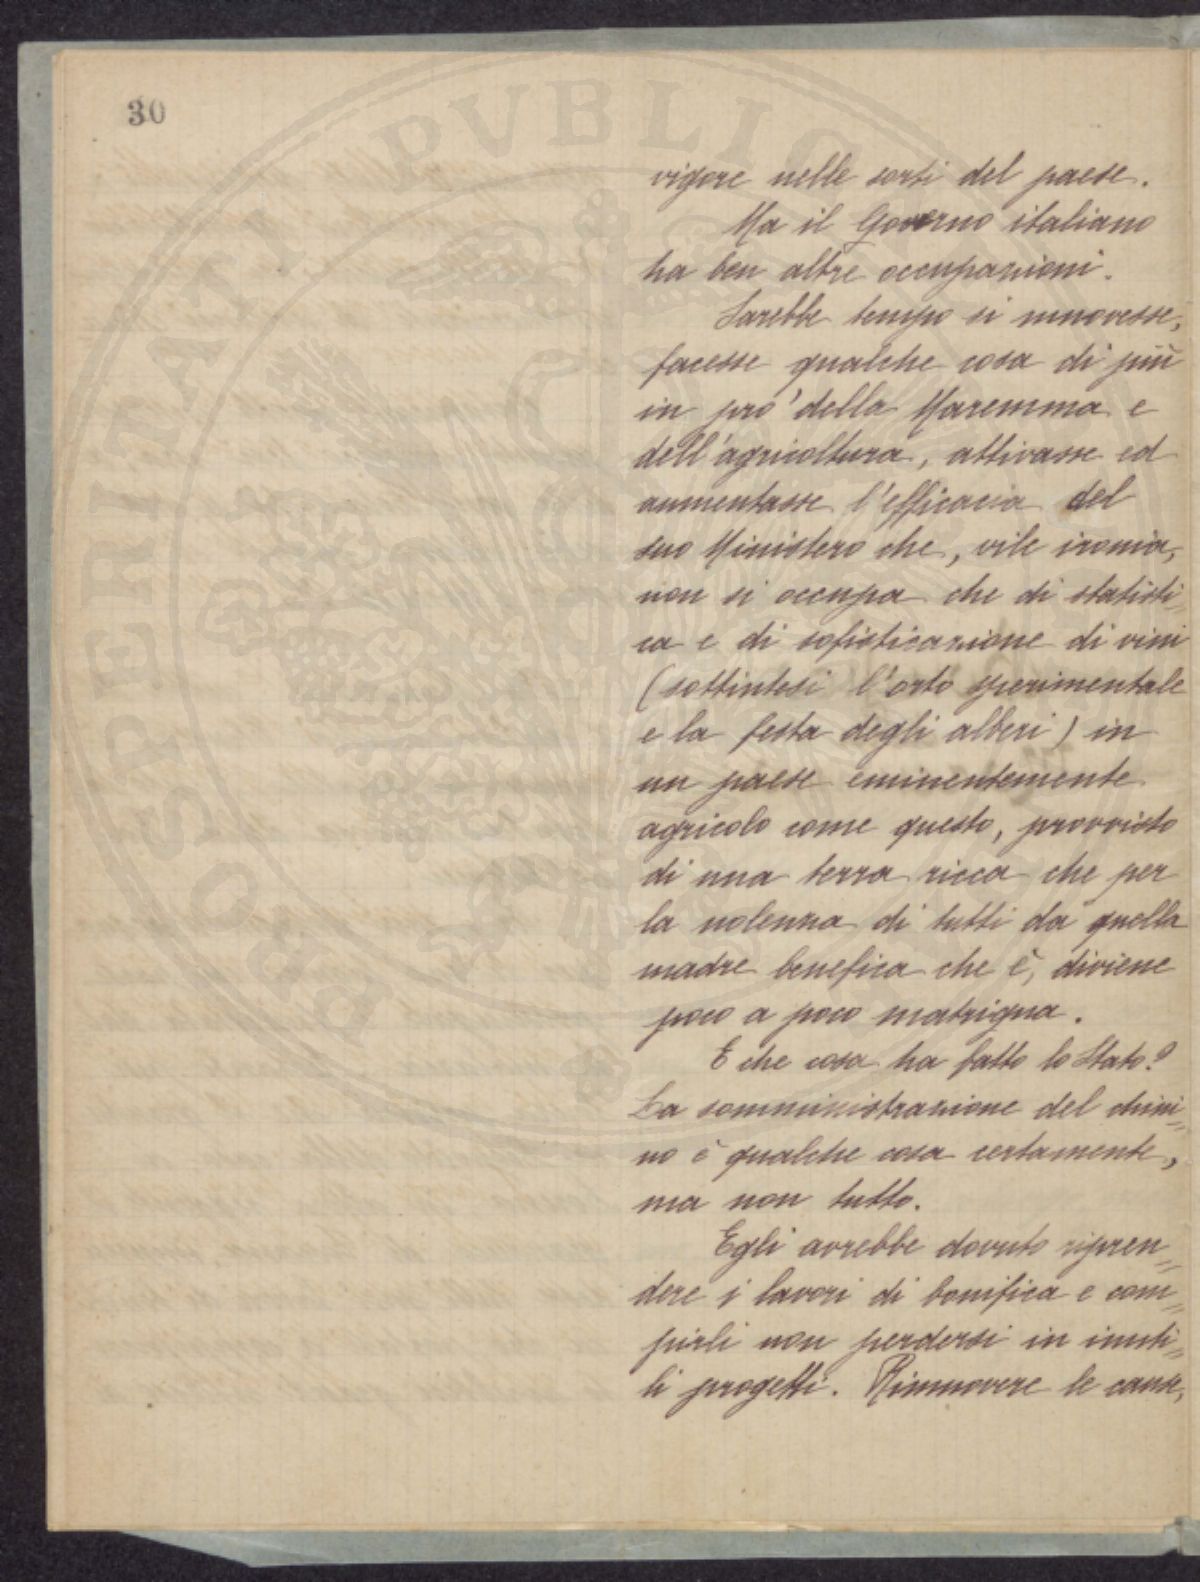 30
PROSPERITATI PUBLIC
vigore nelle sorti del paese.
Ma il Governo italiano
ha ben altre occupazioni.
Sarebbe tempo si muovesse,
facesse qualche cosa di più
in pro' della Maremma e
dell'agricoltura, attivasse ed
aumentasse l'efficacia del
suo Ministero che, vile ironia,
non si occupa che di statisti=
ca e di sofisticazione di vini
(sottintesi l'orto sperimentale
e la festa degli alberi) in
un paese eminentemente
agricolo come questo, provvisto
di una terra ricca che per
la nolenza di tutti da quella
madre benefica che è, diviene
poco a poco matrigna.
E che cosa ha fatto lo Stato?
La somministrazione del chini=
no è qualche cosa certamente,
ma non tutto.
Egli avrebbe dovuto ripren=
dere i lavori di bonifica e com=
pirli non perdersi in inuti=
li progetti. Rimuovere le cause,